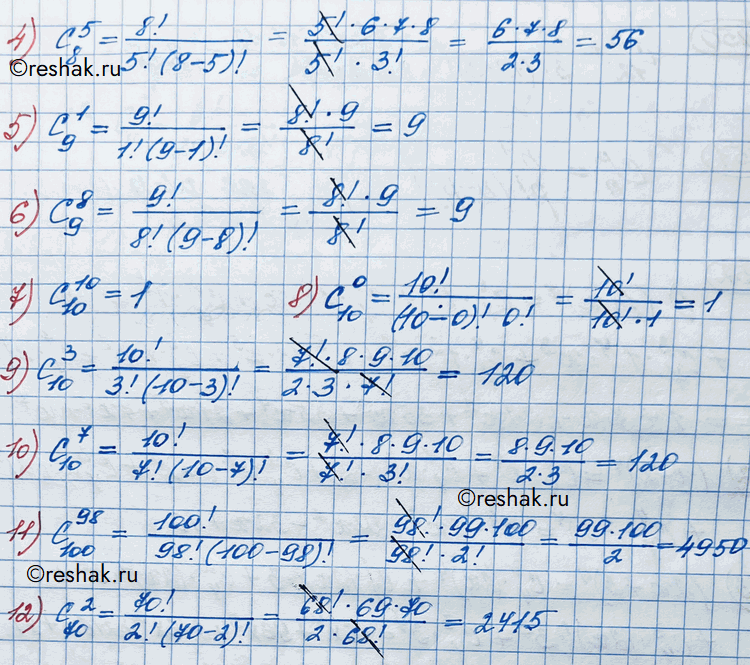 4) C₈⁵ = 8! / 5!(8-5)! = 5!·6·7·8 / 5!·3! = 6·7·8 / 2·3 = 56
©reshak.ru
5) C₉¹ = 9! / 1!(9-1)! = 8!·9 / 8! = 9
6) C₉⁸ = 9! / 8!(9-8)! = 8!·9 / 8! = 9
7) C₁₀¹⁰ = 1 8) C₁₀⁰ = 10! / (10-0)! 0! = 10! / 10!·1 = 1
9) C₁₀³ = 10! / 3!(10-3)! = 7!·8·9·10 / 2·3·7! = 120
10) C₁₀⁷ = 10! / 7!(10-7)! = 7!·8·9·10 / 7!·3! = 8·9·10 / 2·3 = 120
©reshak.ru
11) C₁₀₀⁹⁸ = 100! / 98!(100-98)! = 98!·99·100 / 98!·2! = 99·100 / 2 = 4950
©reshak.ru
12) C₇₀² = 70! / 2!(70-2)! = 68!·69·70 / 2·68! = 2415